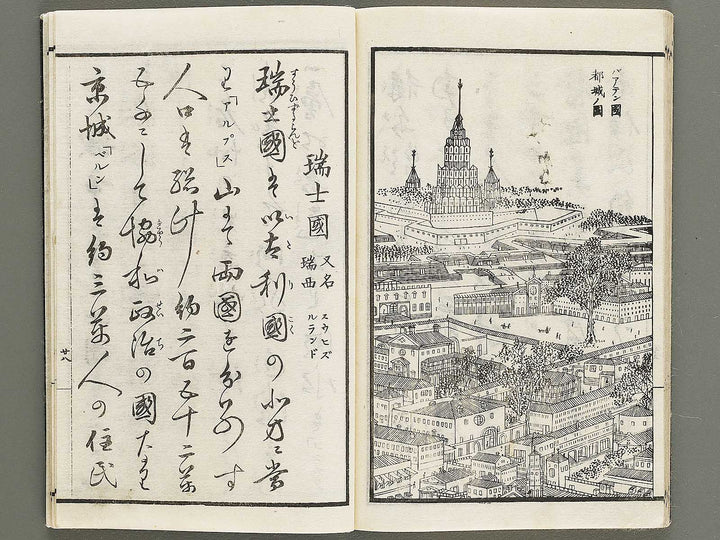 バアテン國
都城ノ圖
瑞士國 又名 スウヒズ
瑞西 ルランド
瑞士國は以太利國の北方に當
り「アルプス」山にて兩國を分別す
人口は總計約二百五十二萬
にして協和政治の國なり
京城「ベルン」は約三萬人の住民
廿八